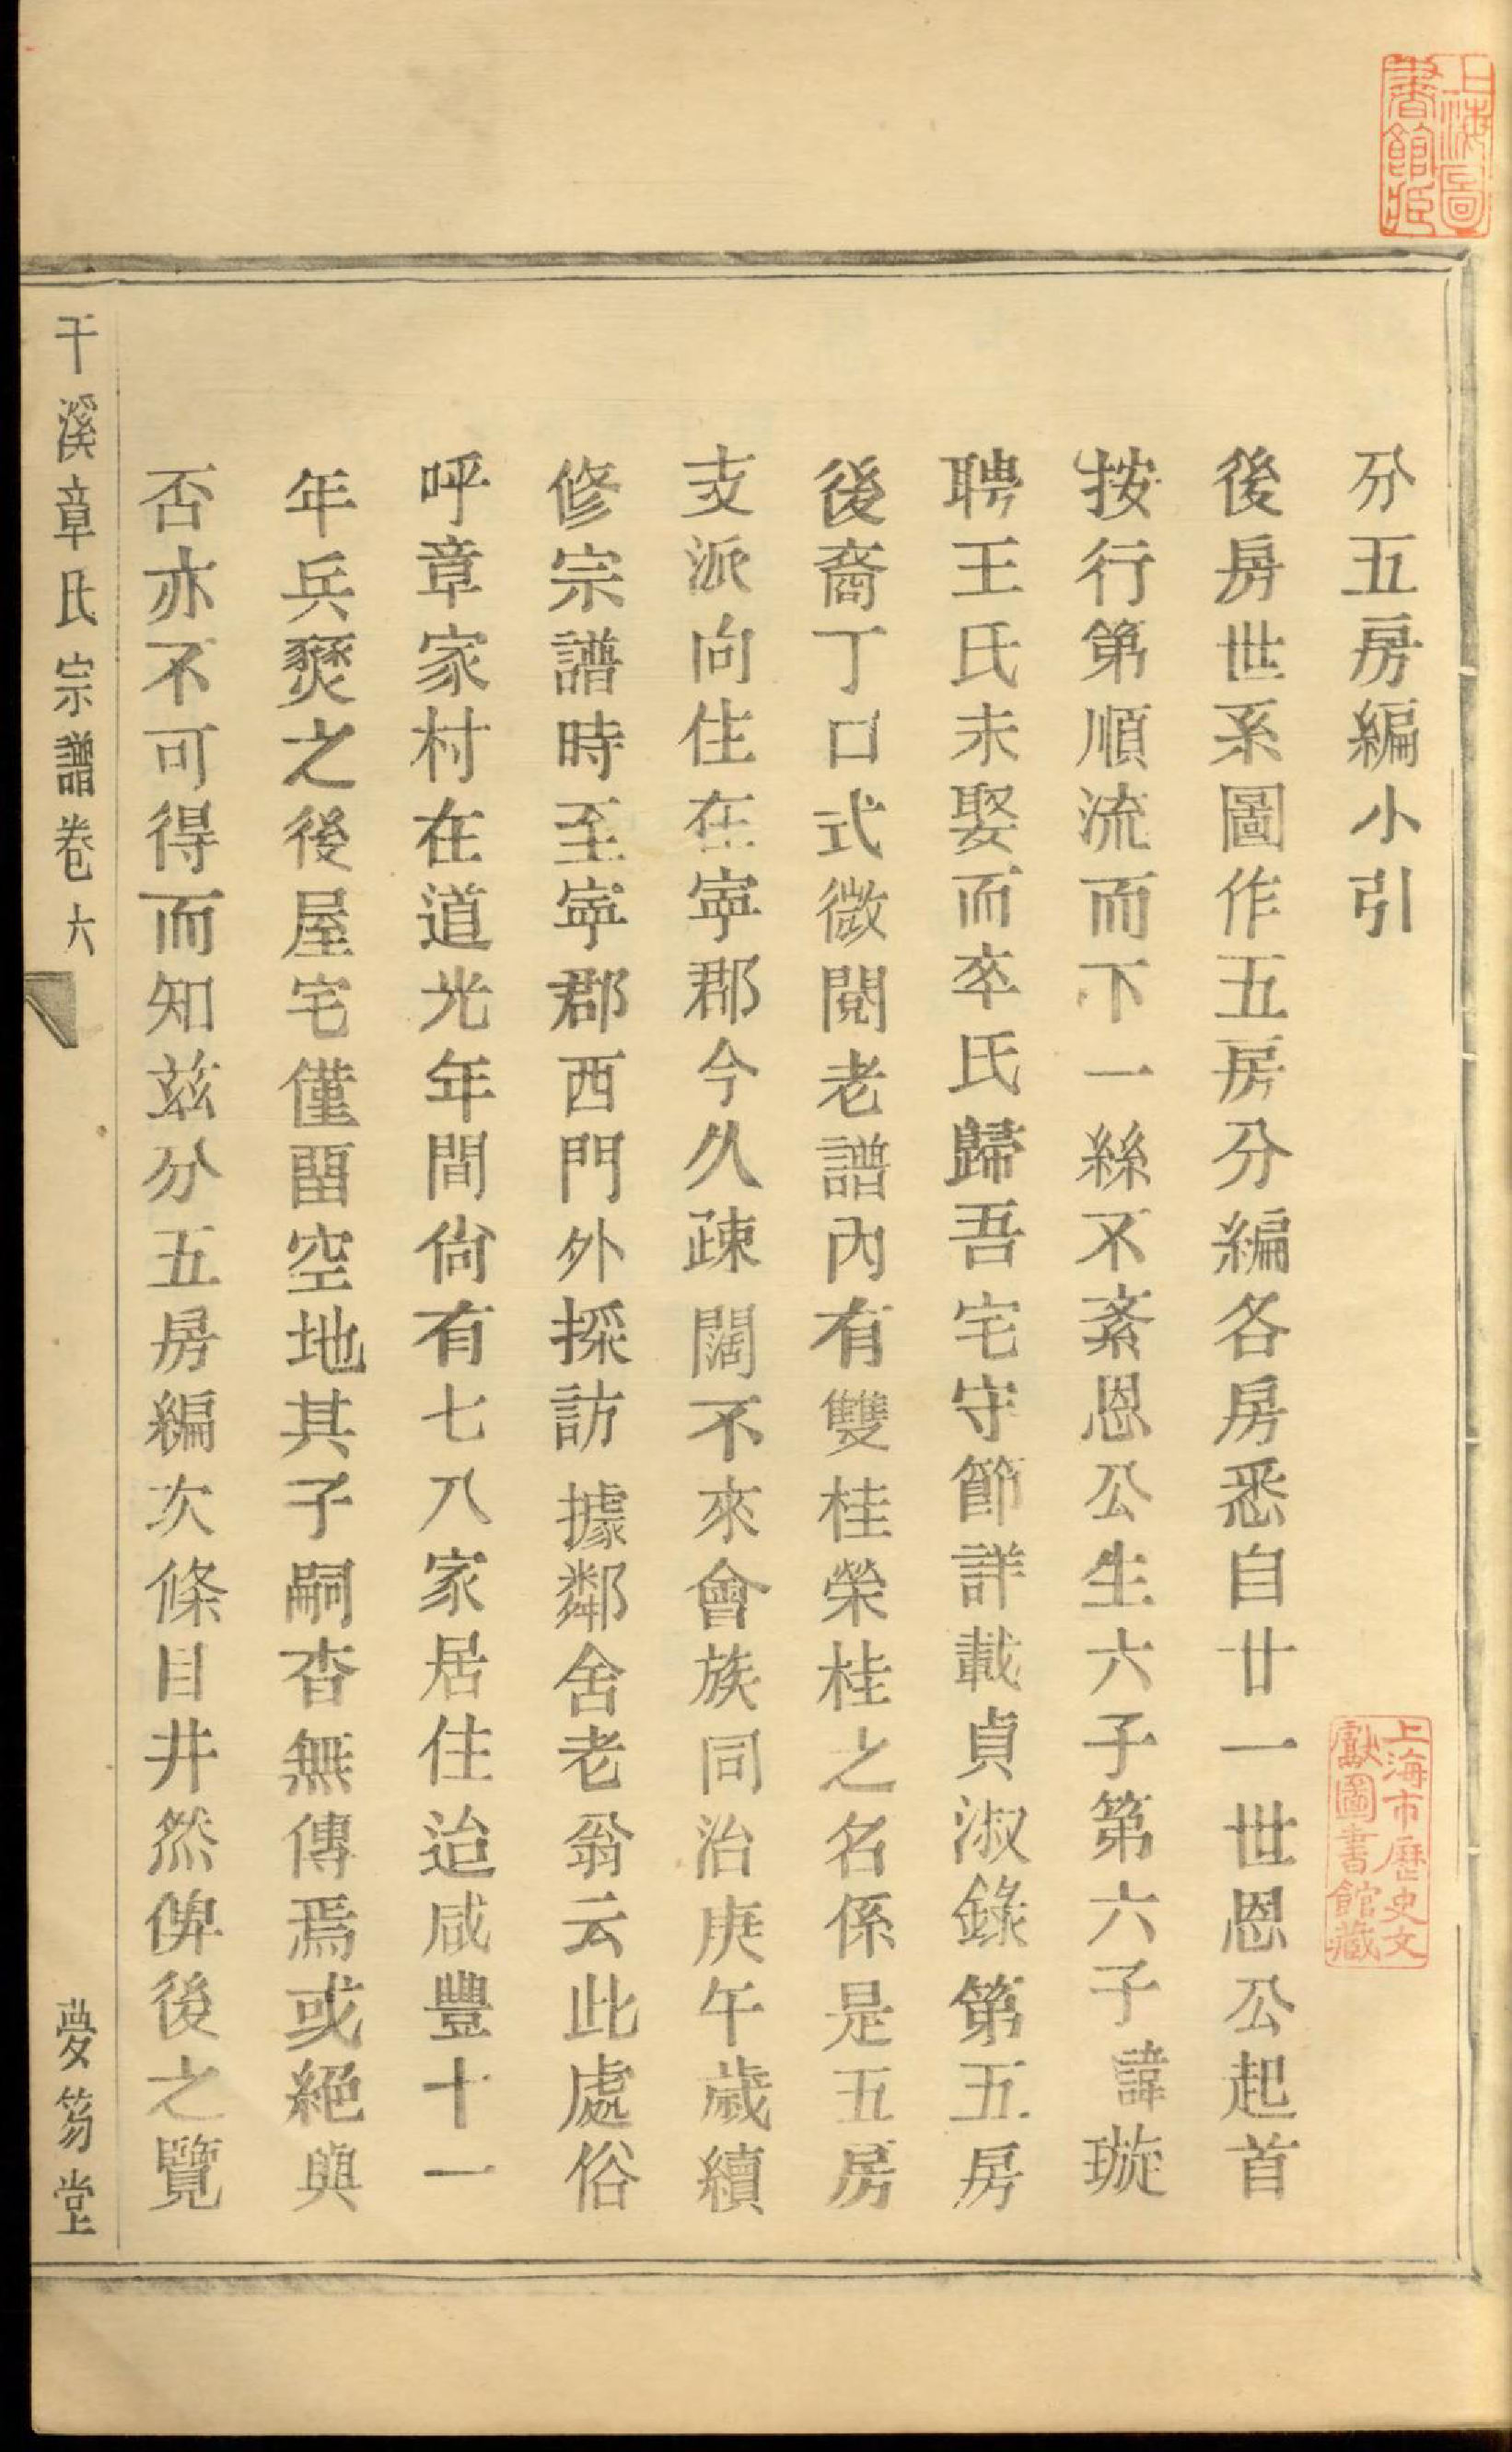 上海圖
書館藏
分五房編小引
上海市歷史文
獻圖書館藏
後房世系圖作五房分編各房悉自廿一世恩公起首
按行第順流而下一絲不紊恩公生六子第六子諱璇
聘王氏未娶而卒氏歸吾宅守節詳載貞淑錄第五房
後裔丁口式微閱老譜內有雙桂榮桂之名係是五房
支派向住在寧郡今久疎闊不來會族同治庚午歲續
修宗譜時至寧郡西門外採訪據鄰舍老翁云此處俗
呼章家村在道光年間尙有七八家居住迨咸豐十一
年兵燹之後屋宅僅畱空地其子嗣杳無傳焉或絕與
否亦不可得而知茲分五房編次條目井然俾後之覽
干溪章氏宗譜卷六
夢笏堂